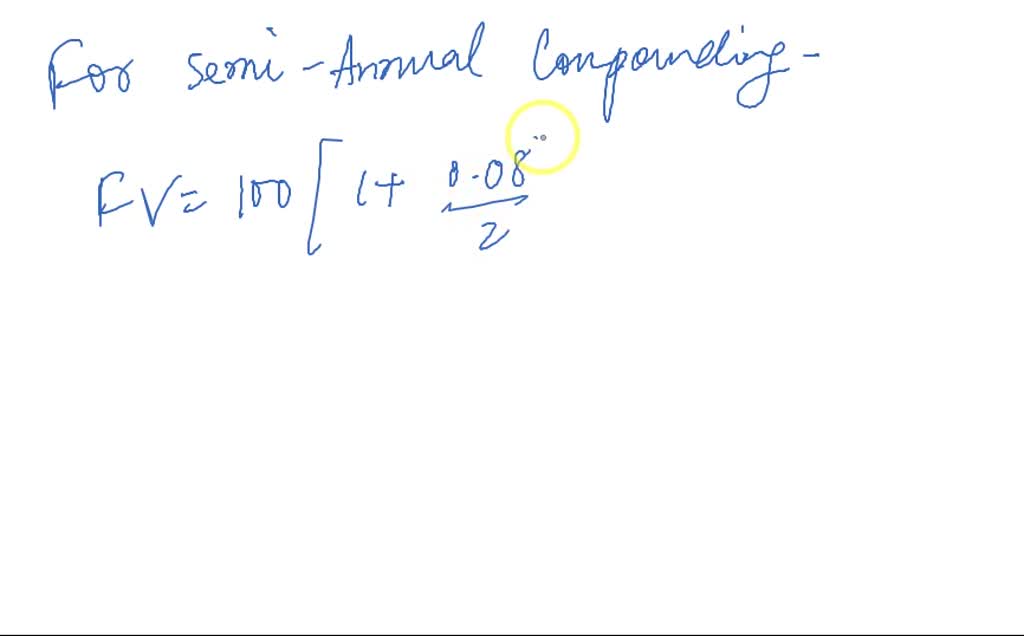 For Semi-Annual Compounding -
FV = 100 [ 1 + 0.08
2